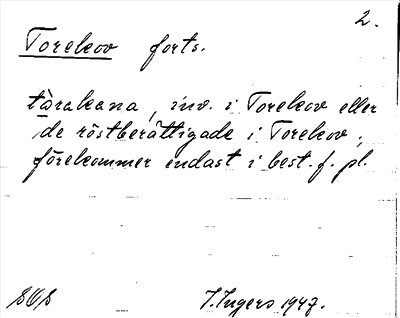 2.
Torekov forts.
tàrakana, inv. i Torekov eller
de röstberättigade i Torekov,
förekommer endast i best. f. pl.
SOS J. Ingers 1947.